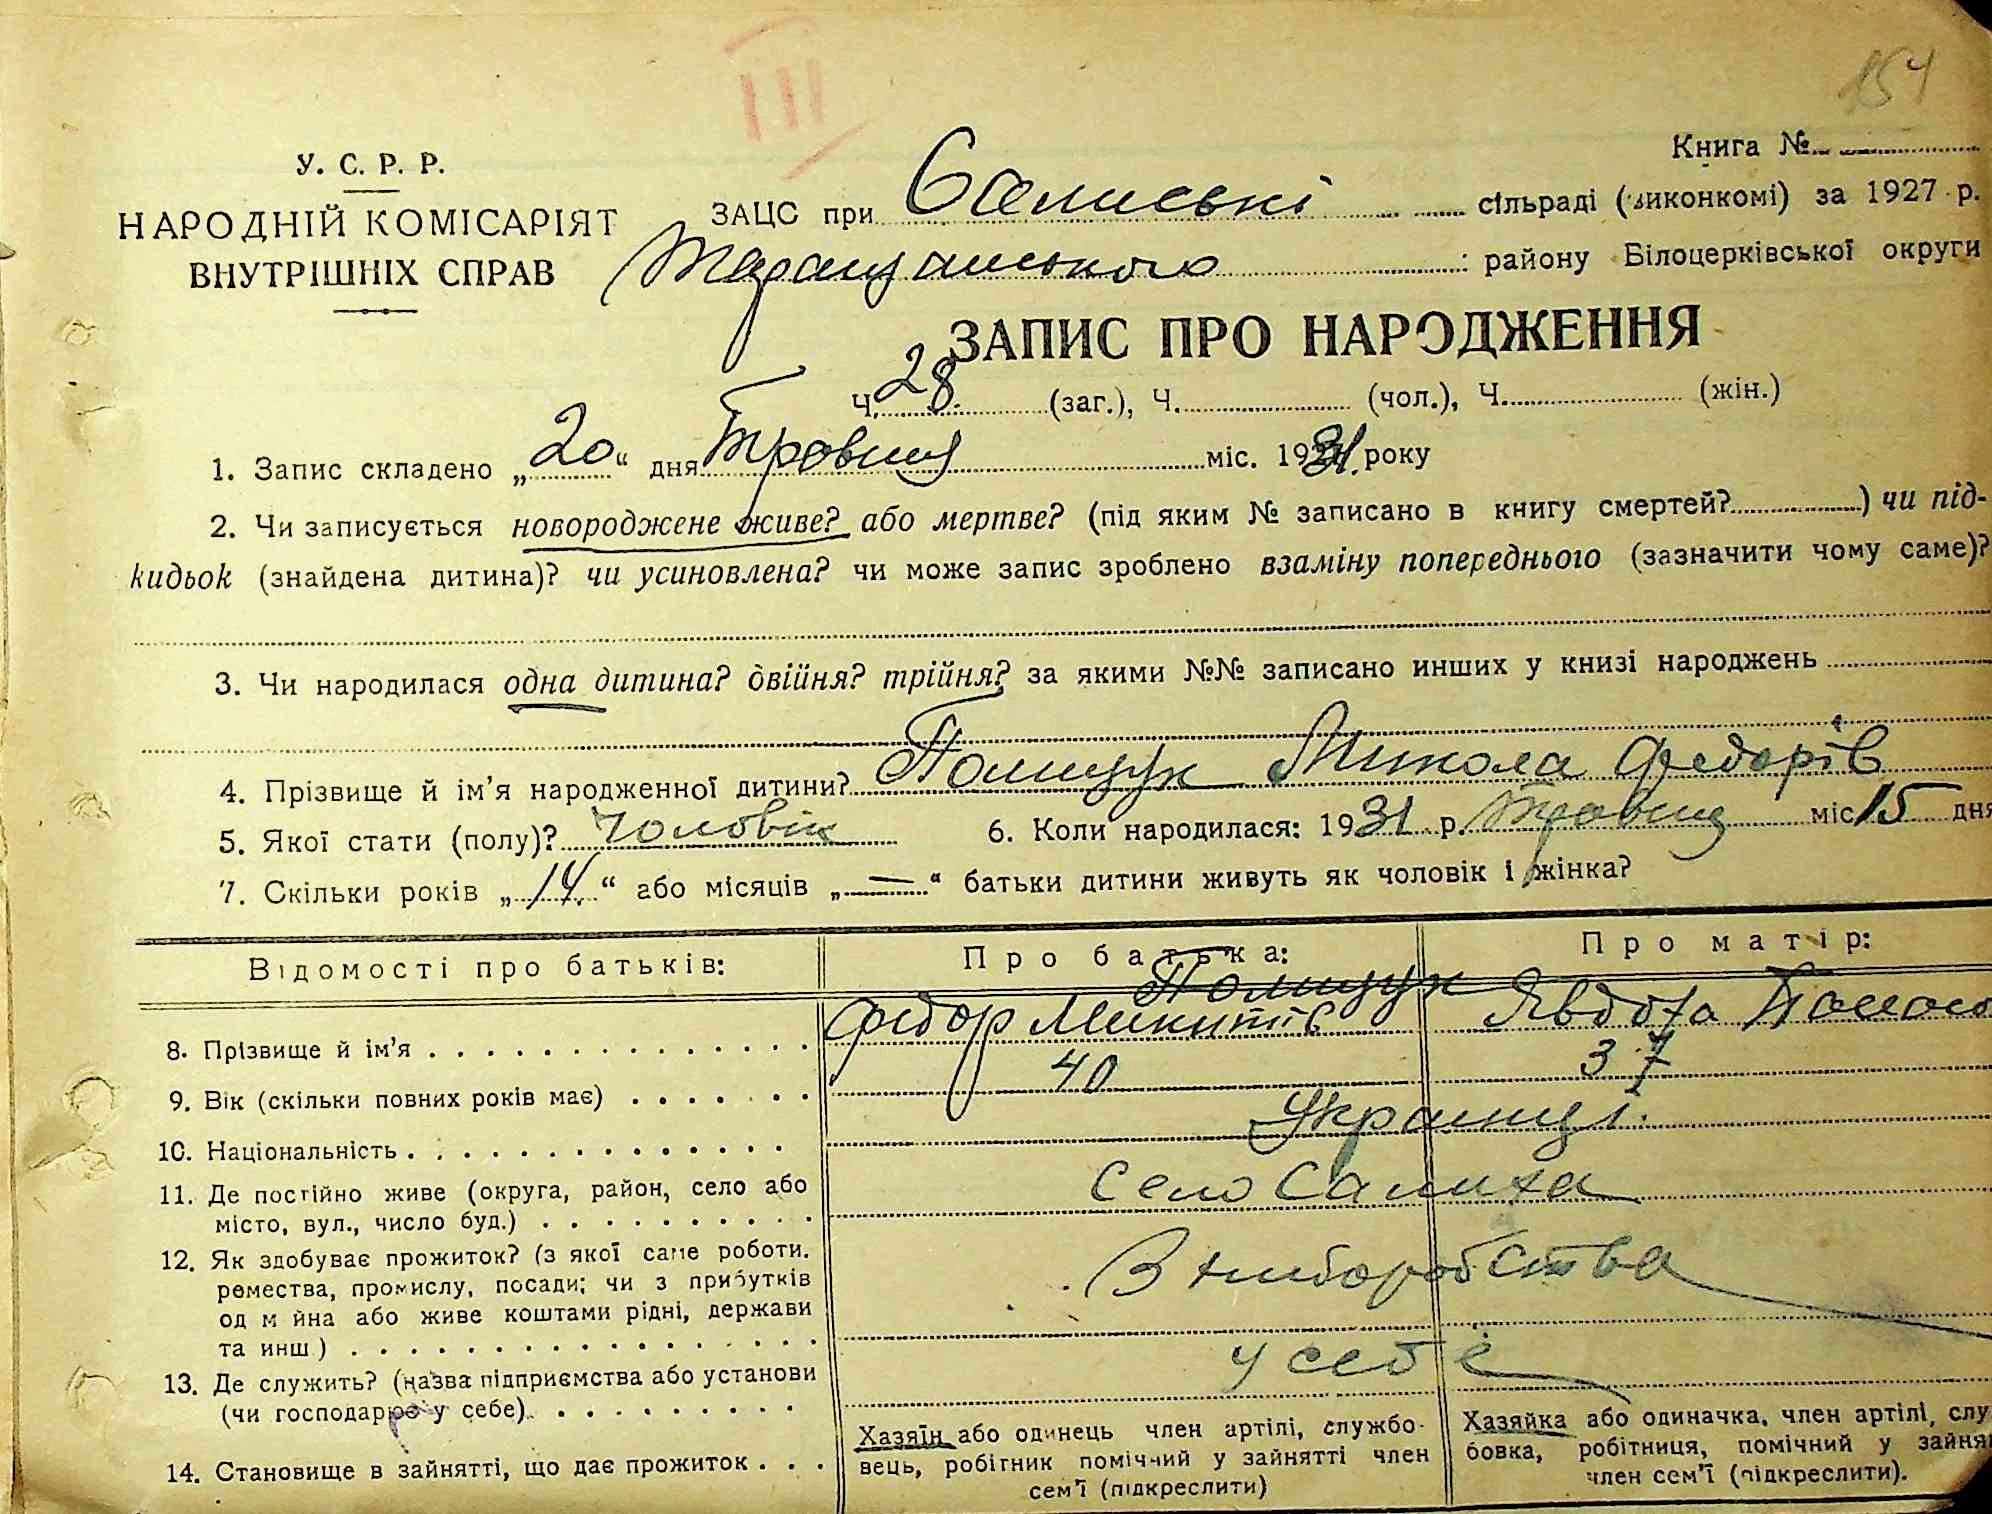 III
154
Книга №
У. С. Р. Р.
НАРОДНІЙ КОМІСАРІЯТ
ВНУТРІШНІХ СПРАВ
ЗАЦС при сільраді (виконкомі) за 1927 р.
Таращанського району Білоцерківської округи
ЗАПИС ПРО НАРОДЖЕННЯ
Ч. 28 (заг.), Ч. (чол.), Ч. (жін.)
1. Запис складено „20“ дня Травня міс. 1931 року
2. Чи записується новороджене живе? або мертве? (під яким № записано в книгу смертей? ) чи під-
кидьок (знайдена дитина)? чи усиновлена? чи може запис зроблено взаміну попереднього (зазначити чому саме)?
3. Чи народилася одна дитина? двійня? трійня? за якими №№ записано инших у книзі народжень
4. Прізвище й ім'я народженної дитини? Полищук Микола Федорів
5. Якої стати (полу)? чоловік 6. Коли народилася: 1931 р. Травня міс 15 дня
7. Скільки років „14.“ або місяців „—“ батьки дитини живуть як чоловік і жінка?
Відомості про батьків: Про батька: Про матір:
Полищук
8. Прізвище й ім'я Федор Микитів Явдоха
9. Вік (скільки повних років має) 40 37
10. Національність Українці.
11. Де постійно живе (округа, район, село або
місто, вул., число буд.) Село Салиха
12. Як здобуває прожиток? (з якої саме роботи.
ремества, промислу, посади; чи з прибутків
од м йна або живе коштами рідні, держави
та инш.) З хліборобства
13. Де служить? (назва підприємства або установи
(чи господарює у себе) у себе
14. Становище в зайнятті, що дає прожиток
Хазяїн або одинець член артілі, службо-
вець, робітник помічний у зайнятті член
сем'ї (підкреслити)
Хазяйка або одиначка, член артілі, слу
бовка, робітниця, помічний у зайня
член сем'ї (підкреслити).